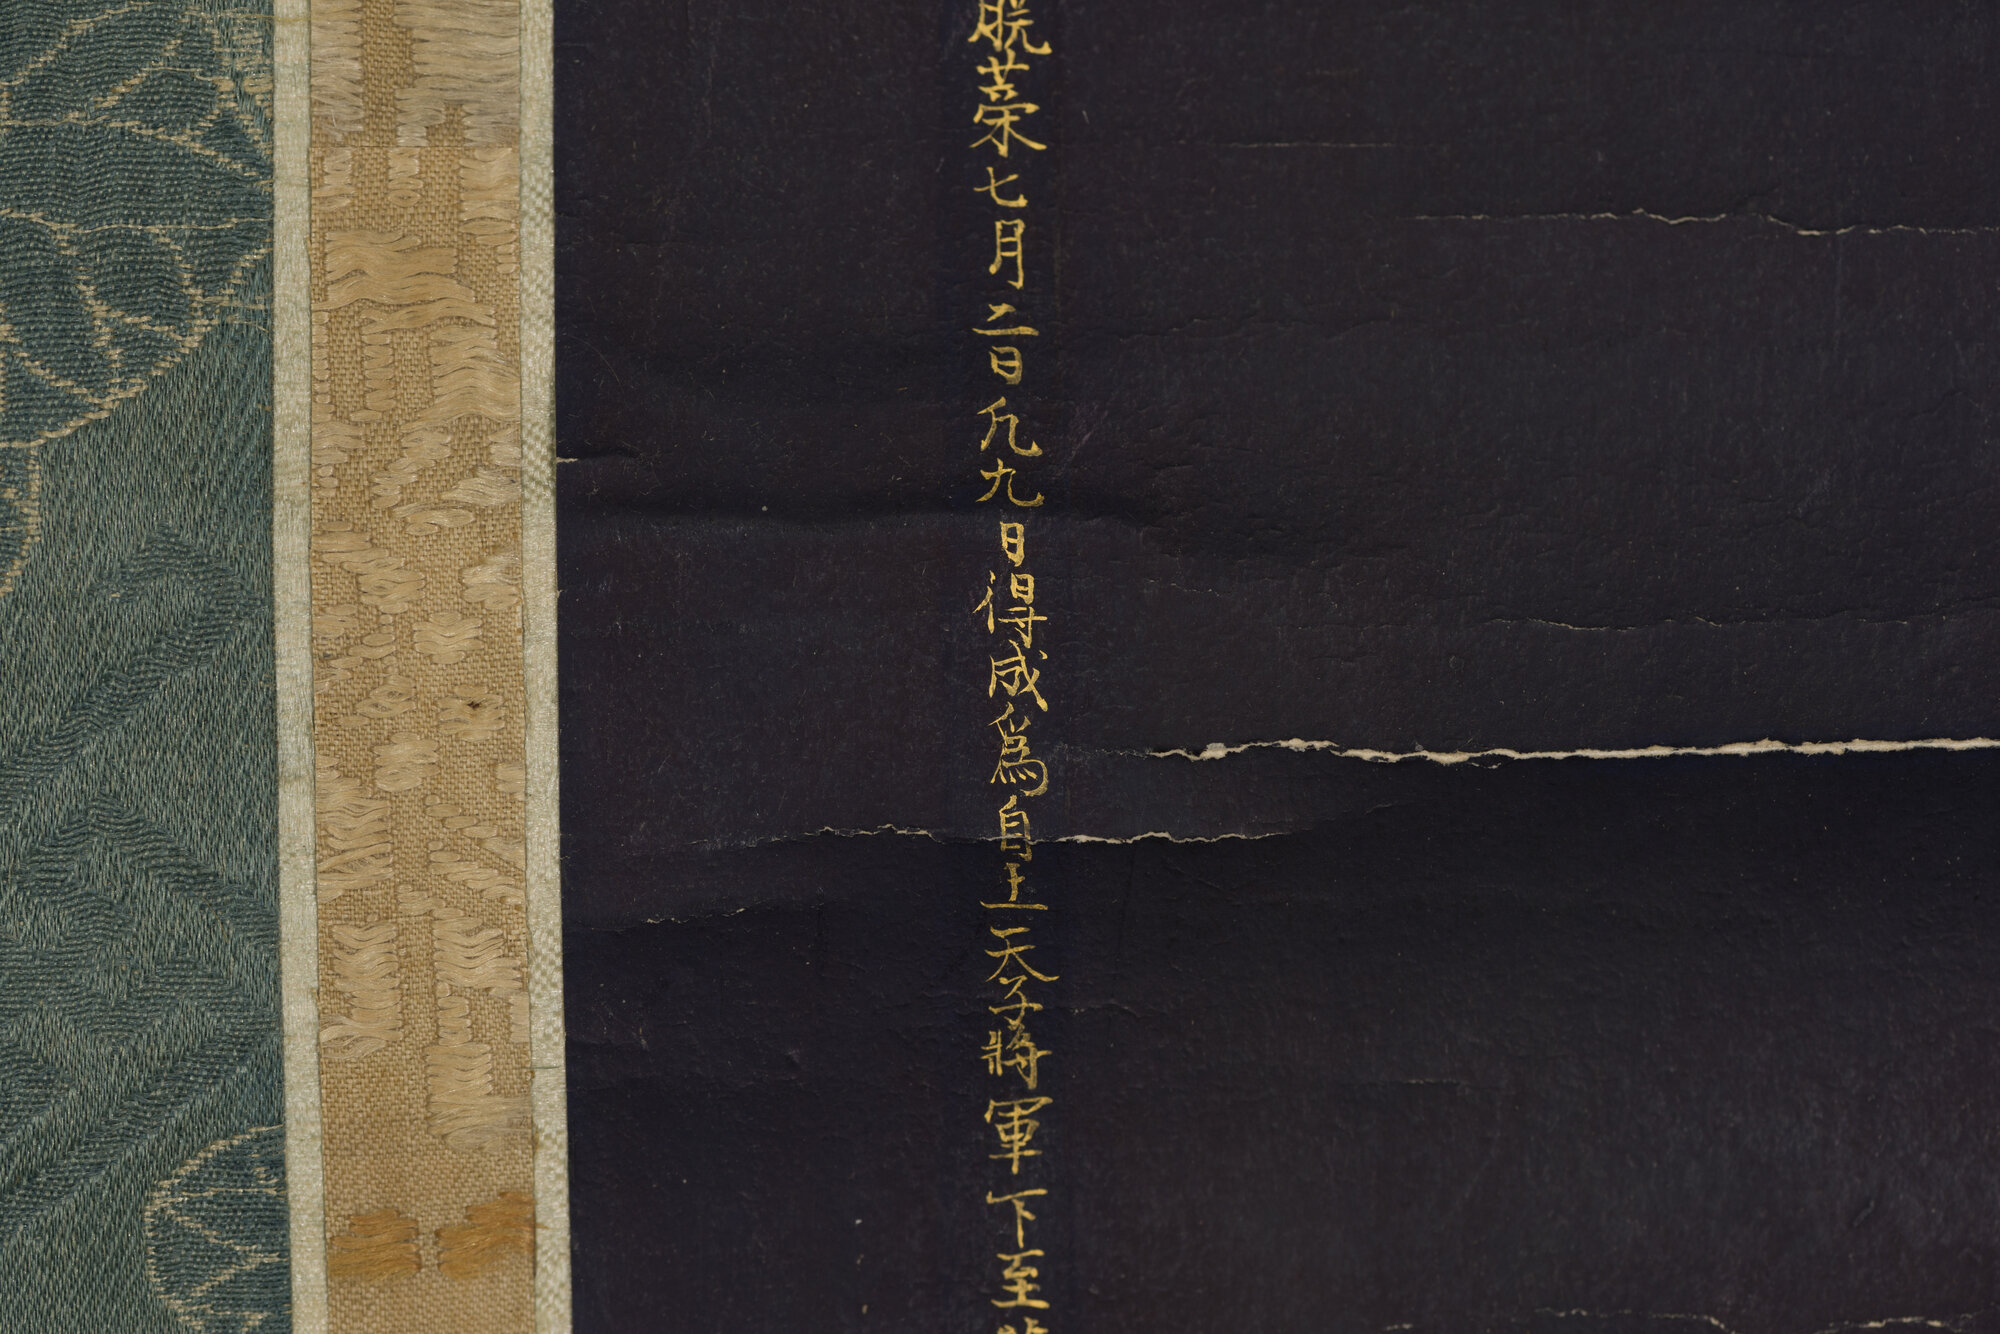 脱菜七月二日凡九日得成爲自上天子將軍下至